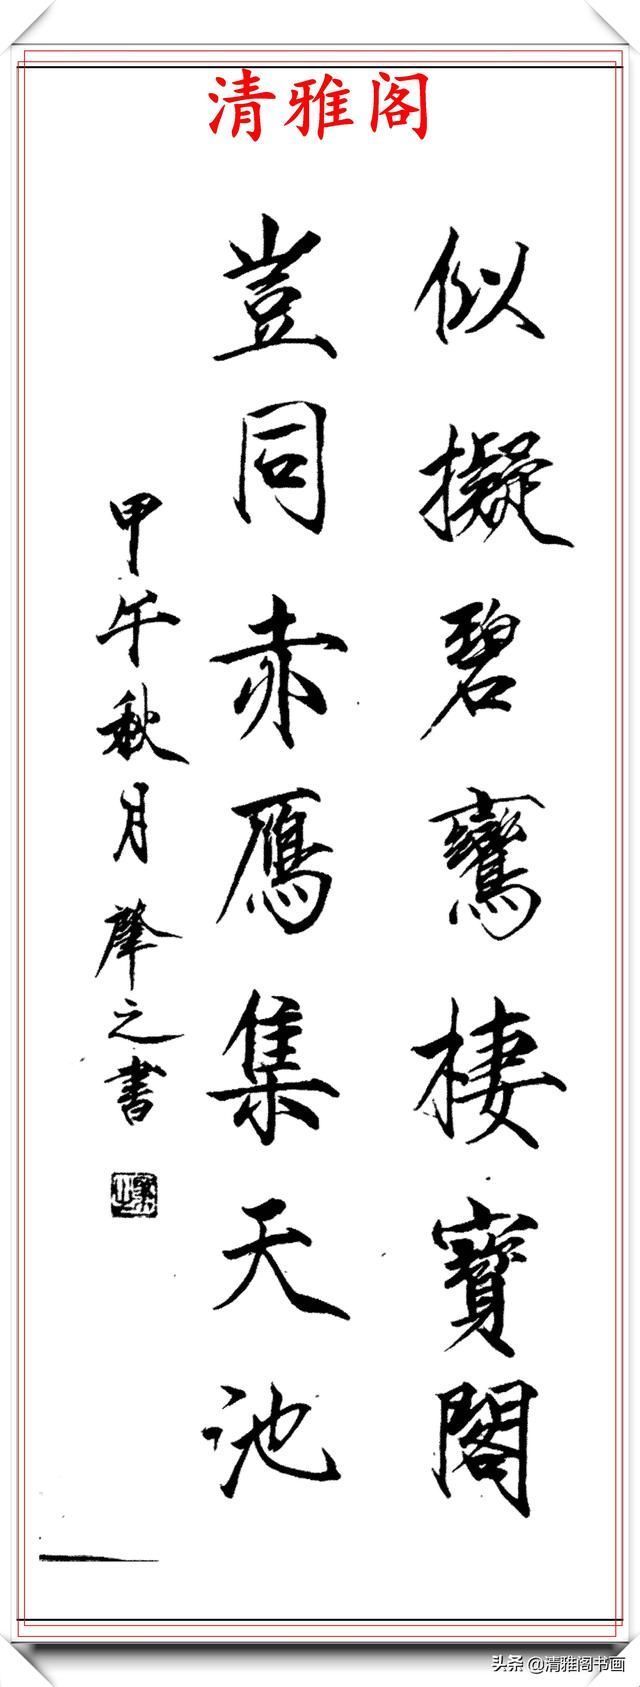 清雅阁
似擬碧鸞棲寶閣
豈同赤鴈集天池
甲午秋月肇之書
头条 @清雅阁书画